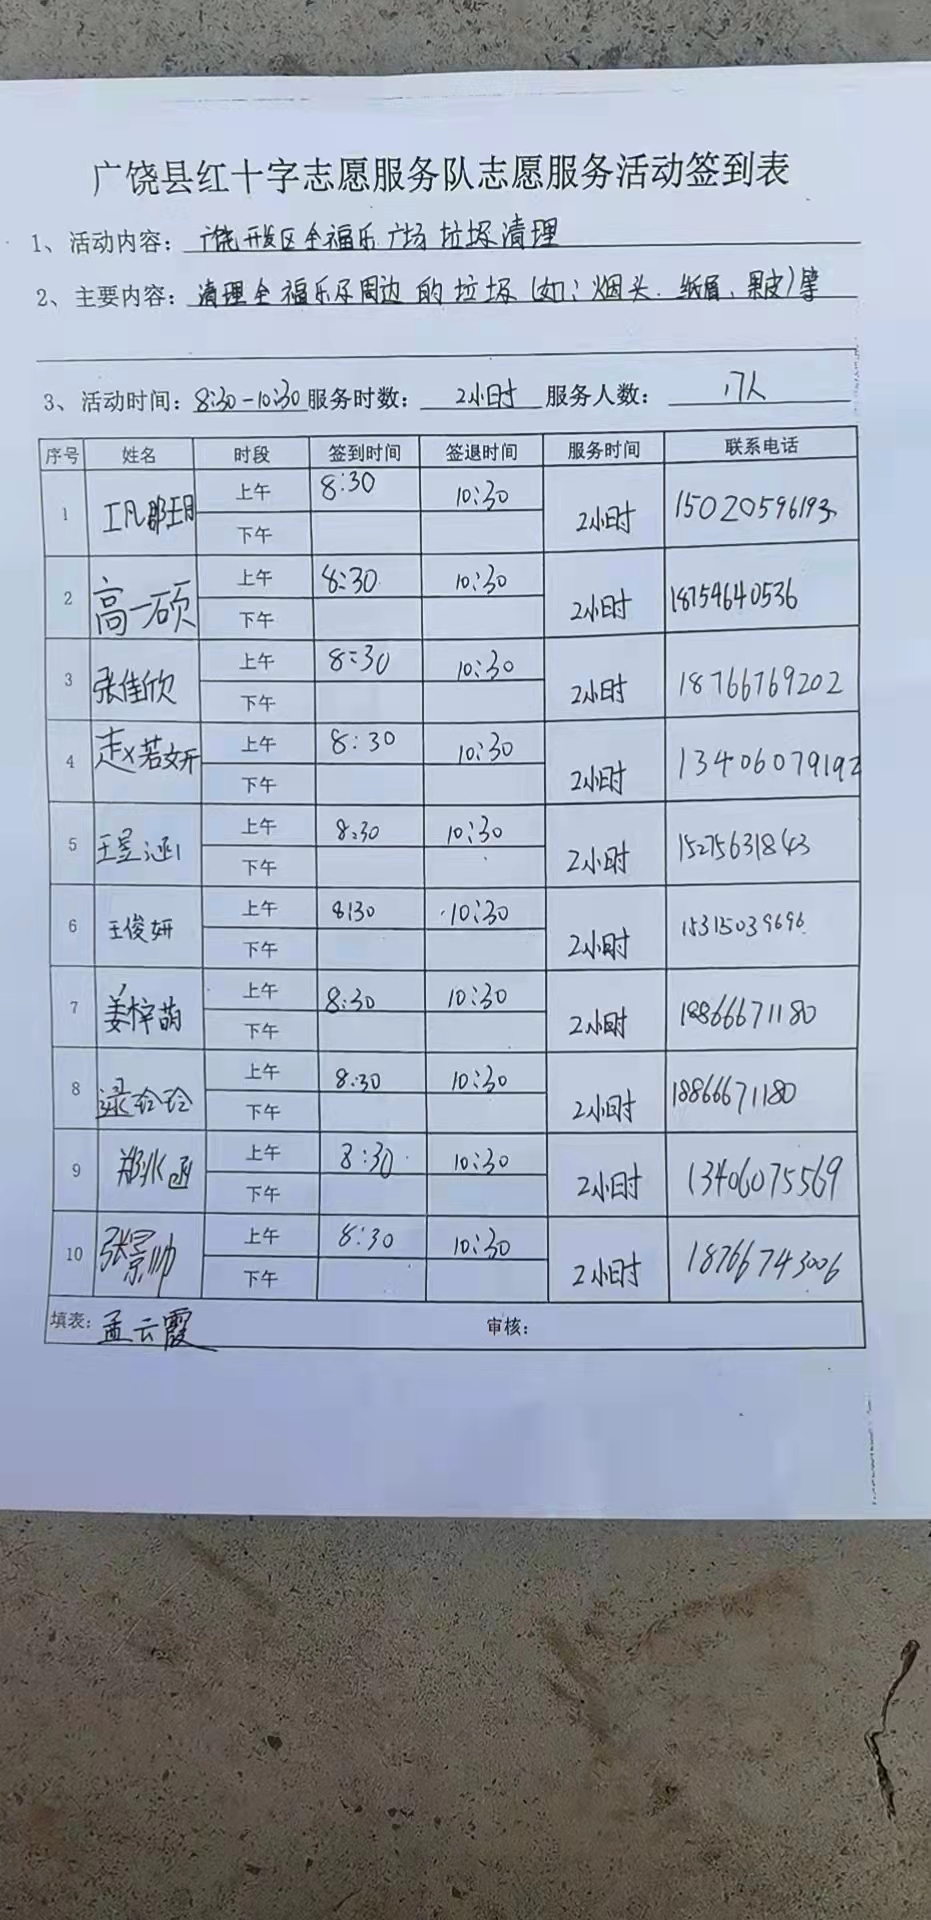 广饶县红十字志愿服务队志愿服务活动签到表
1、活动内容: 广饶开发区全福乐广场垃圾清理
2、主要内容: 清理全福乐及周边的垃圾(如:烟头、纸屑、果皮)等
3、活动时间: 8:30-10:30 服务时数: 2小时 服务人数: 17人
序号 姓名 时段 签到时间 签退时间 服务时间 联系电话
1 上午 8:30 10:30 2小时 15020596193
下午
2 高一硕 上午 8:30 10:30 2小时 18754640536
下午
3 张佳欣 上午 8:30 10:30 2小时 18766769202
下午
4 赵若妍 上午 8:30 10:30 2小时 13406079192
下午
5 王昱涵 上午 8:30 10:30 2小时 15275631843
下午
6 王俊妍 上午 8:30 10:30 2小时 15315039696
下午
7 姜梓萌 上午 8:30 10:30 2小时 18866671180
下午
8 上午 8:30 10:30 2小时 18866671180
下午
9 上午 8:30 10:30 2小时 13406075569
下午
10 张景帅 上午 8:30 10:30 2小时 18766743006
下午
填表: 孟云霞 审核: